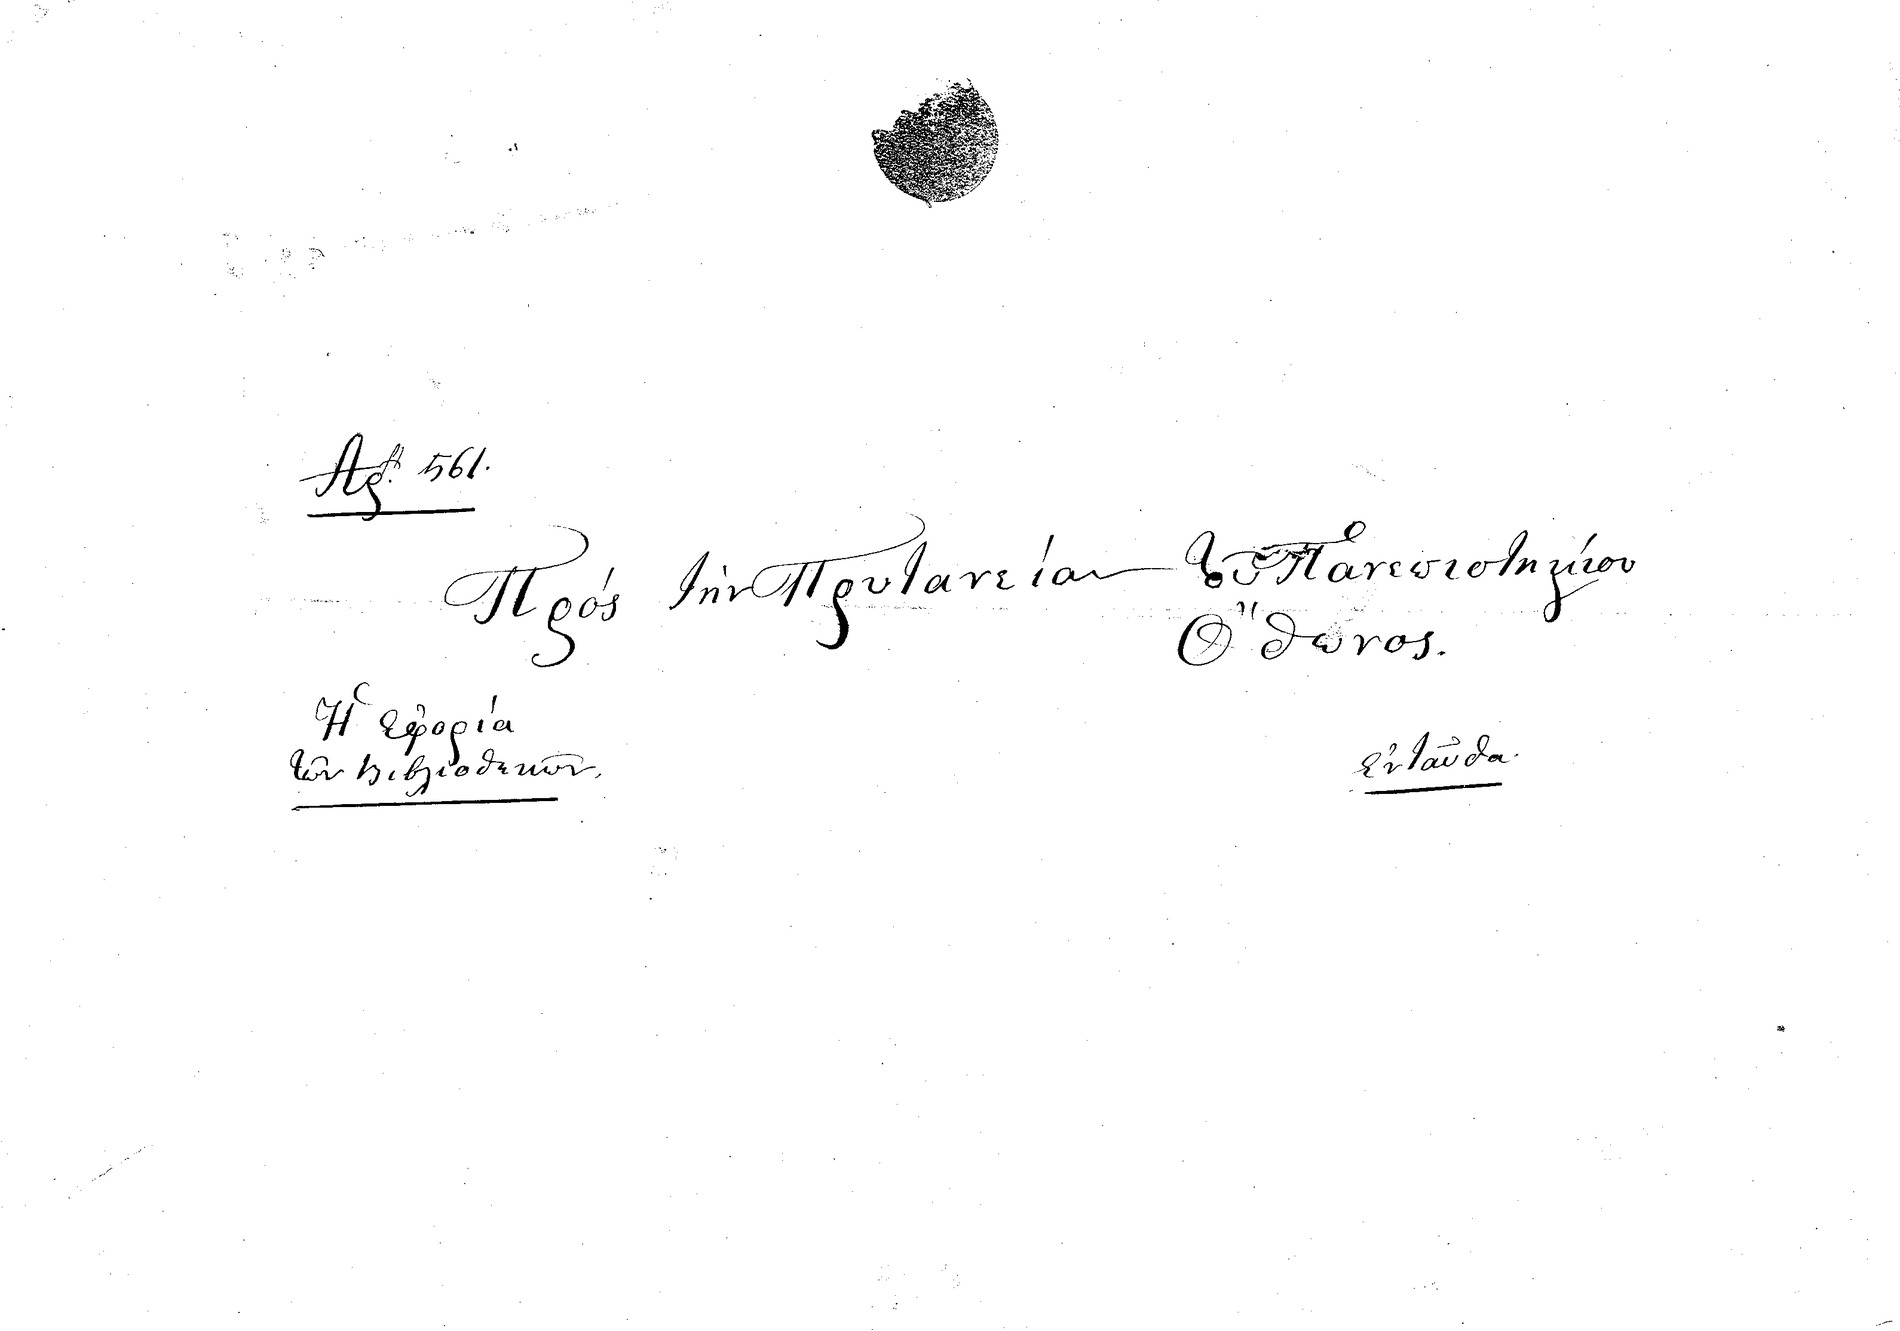 Αρ. 561.
Πρός τὴν Πρυτανείαν τοῦ Πανεπιστημίου
Ὄθωνος.
Ἡ ἐφορία
τῶν βιβλιοθηκῶν.
ἐνταῦθα.